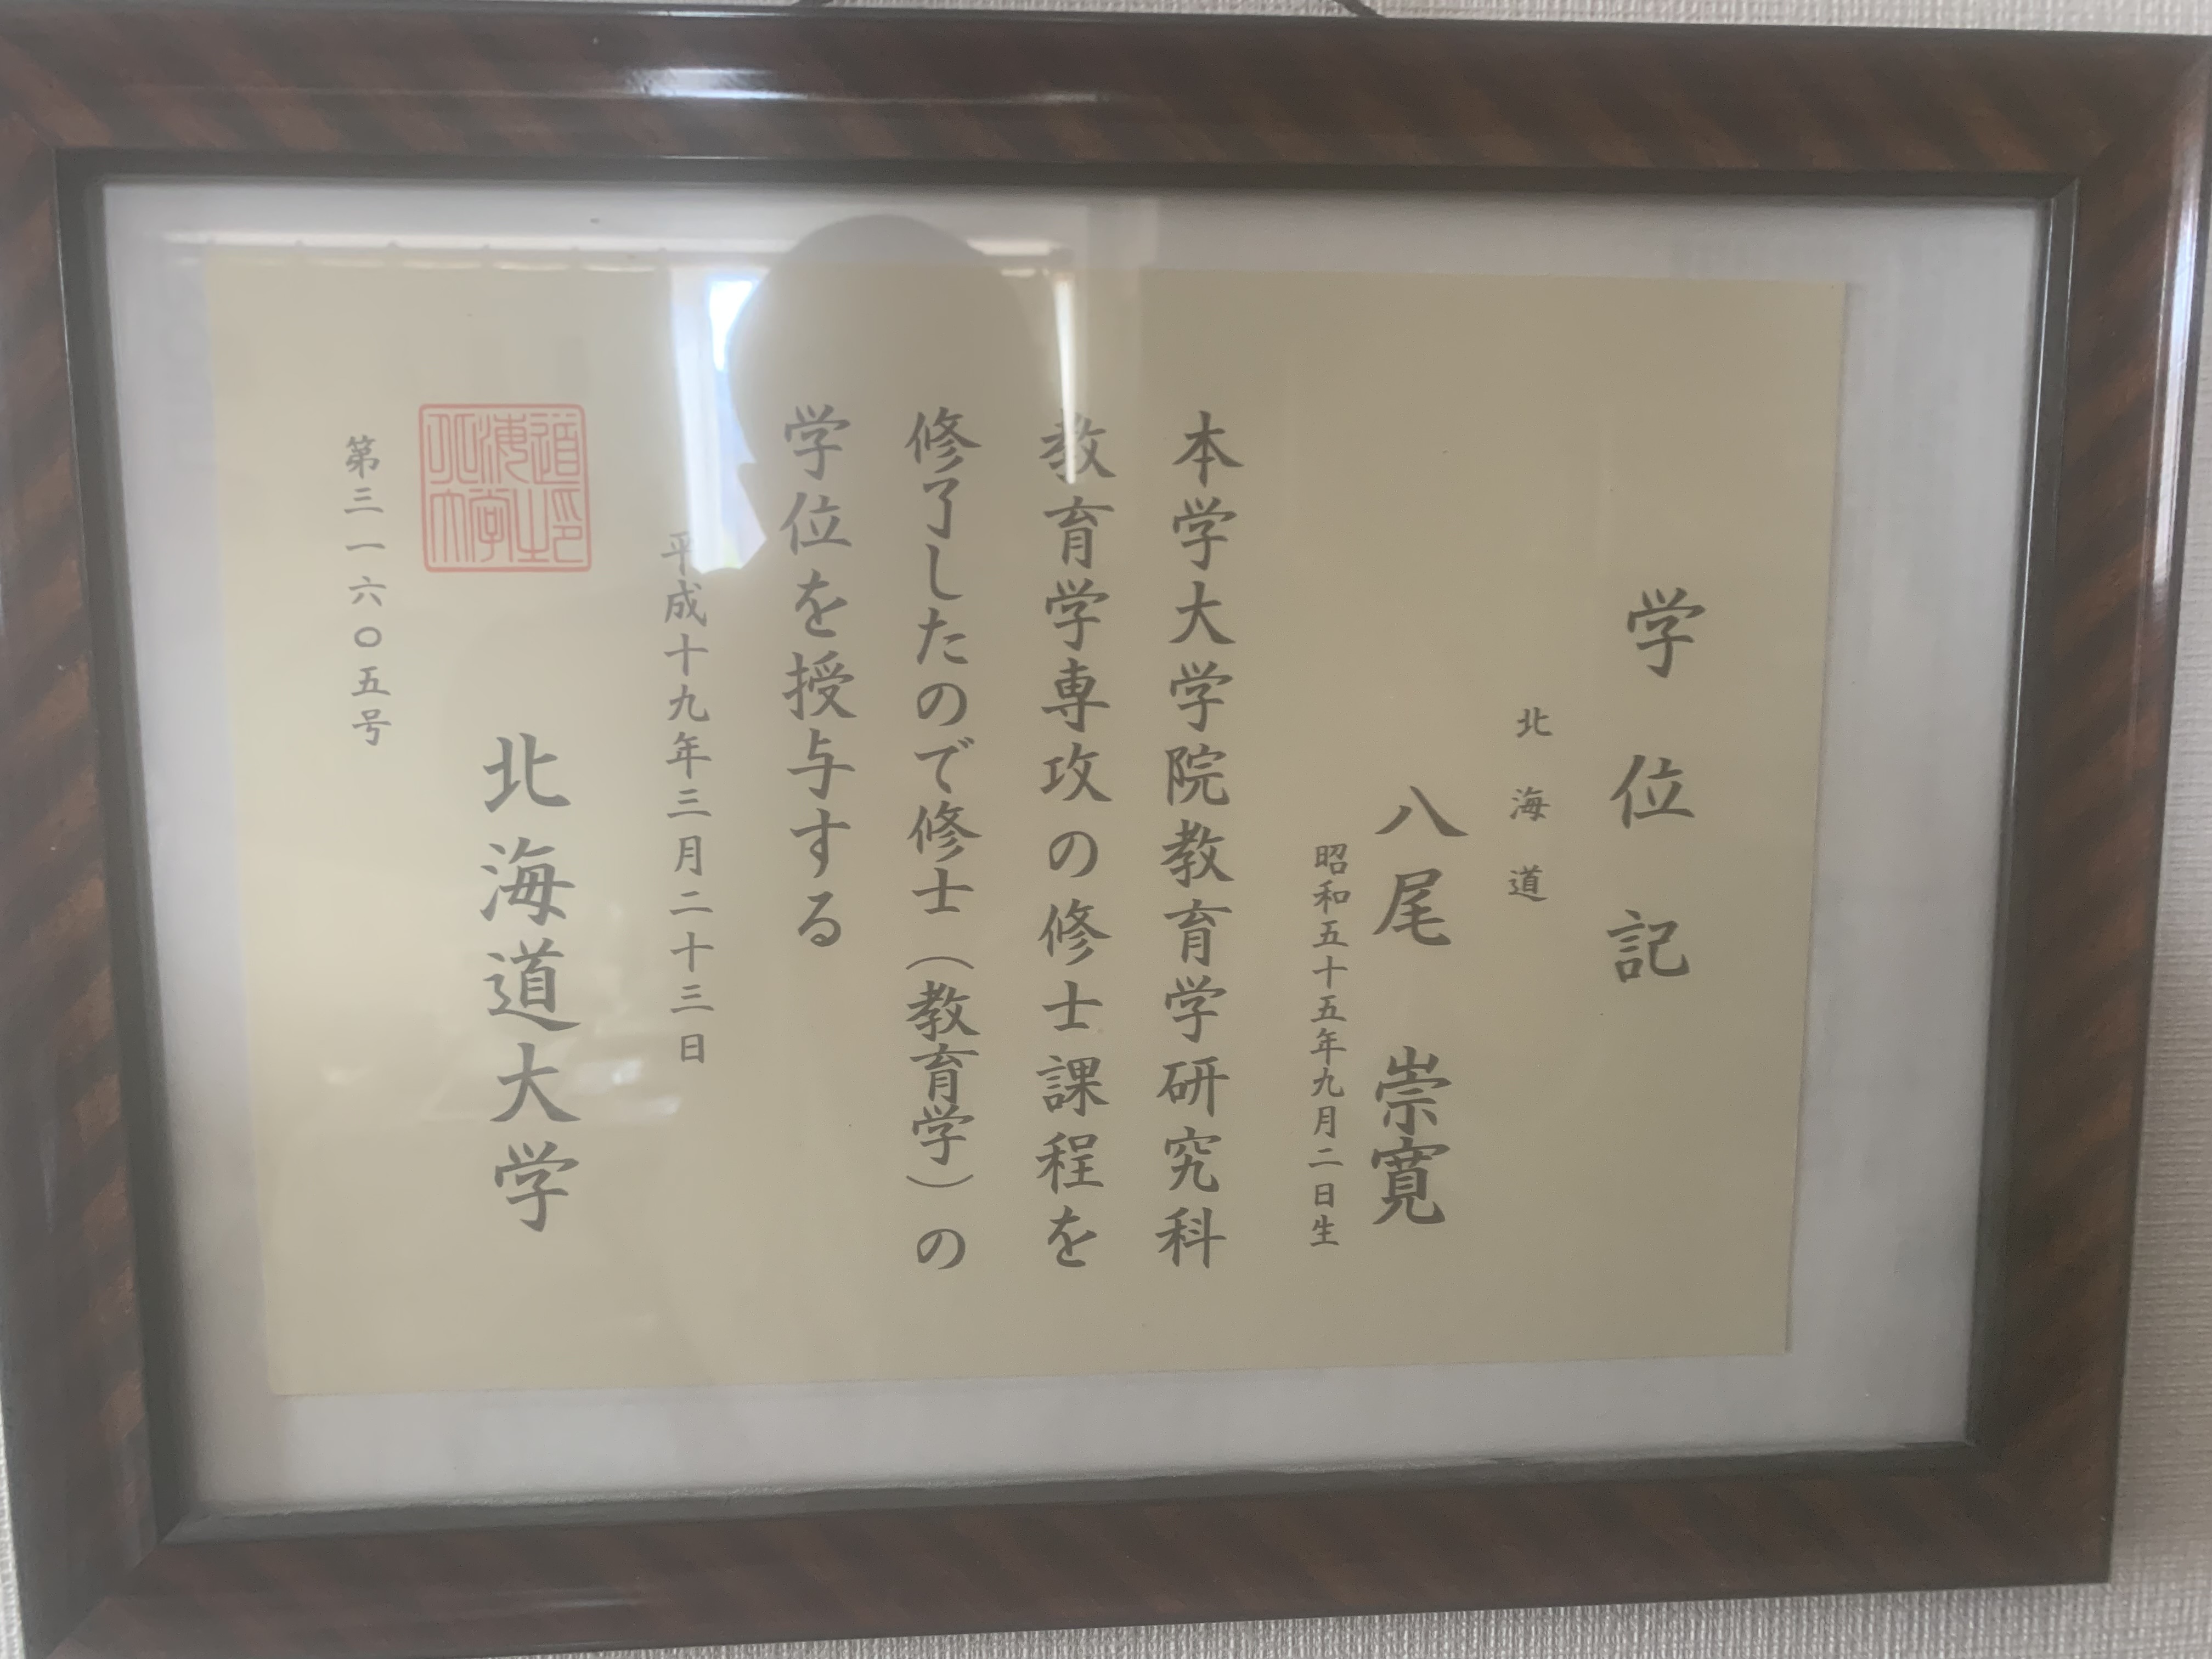 学位記
北海道
八尾 崇寛
昭和五十五年九月二日生
本学大学院教育学研究科
教育学専攻の修士課程を
修了したので修士（教育学）の
学位を授与する
平成十九年三月二十三日
北海道大学
北海道大学之印
第三一六〇五号